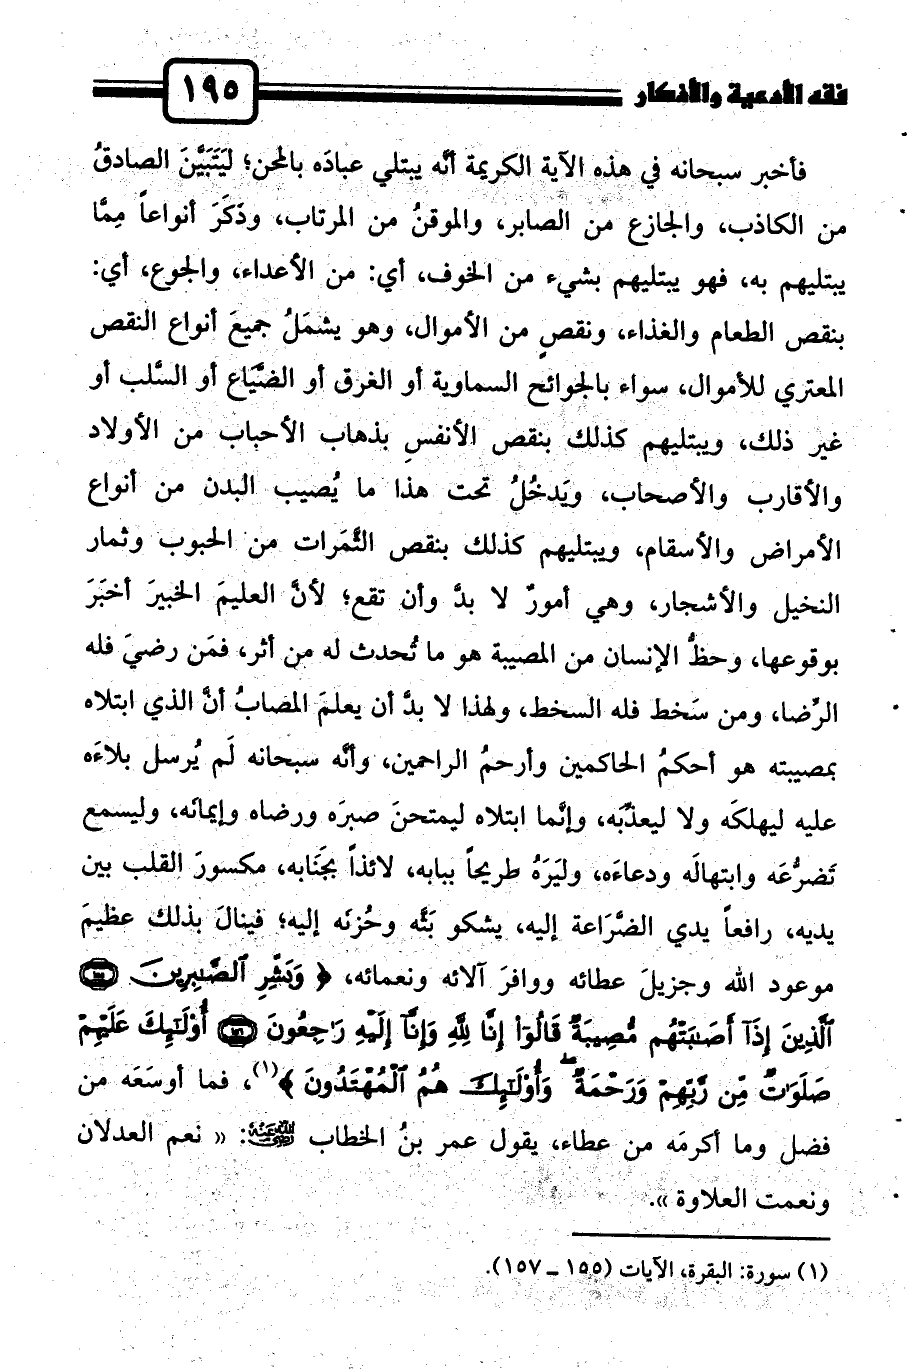 فقه الأدعية والأذكار
١٩٥
فأخبر سبحانه في هذه الآية الكريمة أنَّه يبتلي عبادَه بالمحن؛ ليَتَبَيَّنَ الصادقُ
من الكاذب، والجازع من الصابر، والموقنُ من المرتاب، وذَكَرَ أنواعاً مِمَّا
يبتليهم به، فهو يبتليهم بشيء من الخوف، أي: من الأعداء، والجوع، أي:
بنقص الطعام والغذاء، ونقصٍ من الأموال، وهو يشمَلُ جميعَ أنواع النقص
المعتري للأموال، سواء بالجوائح السماوية أو الغرق أو الضَّيَاع أو السَّلب أو
غير ذلك، ويبتليهم كذلك بنقص الأنفسِ بذهاب الأحباب من الأولاد
والأقارب والأصحاب، ويَدخُلُ تحت هذا ما يُصيب البدن من أنواع
الأمراض والأسقام، ويبتليهم كذلك بنقص الثَّمَرات من الحبوب وثمار
النخيل والأشجار، وهي أمورٌ لا بدَّ وأن تقع؛ لأنَّ العليمَ الخبيرَ أخبَرَ
بوقوعها، وحظُّ الإنسان من المصيبة هو ما تُحدث له من أثر، فمَن رضيَ فله
الرِّضا، ومن سَخط فله السخط، ولهذا لا بدَّ أن يعلمَ المصابُ أنَّ الذي ابتلاه
بمصيبته هو أحكمُ الحاكمين وأرحمُ الراحمين، وأنَّه سبحانه لَم يُرسل بلاءَه
عليه ليهلكَه ولا ليعذِّبَه، وإنَّما ابتلاه ليمتحنَ صبرَه ورضاه وإيمانَه، وليسمع
تَضرُّعَه وابتهالَه ودعاءَه، وليَرَهُ طريحاً ببابه، لائذاً بجَنَابه، مكسورَ القلب بين
يديه، رافعاً يدي الضَّرَاعة إليه، يشكو بَثَّه وحُزنَه إليه؛ فينالَ بذلك عظيمَ
موعود الله وجزيلَ عطائه ووافرَ آلائه ونعمائه، ﴿ وَبَشِّرِ ٱلصَّٰبِرِينَ ۝١٥٥
ٱلَّذِينَ إِذَآ أَصَٰبَتْهُم مُّصِيبَةٌ قَالُوٓا۟ إِنَّا لِلَّهِ وَإِنَّآ إِلَيْهِ رَٰجِعُونَ ۝١٥٦ أُو۟لَٰٓئِكَ عَلَيْهِمْ
صَلَوَٰتٌ مِّن رَّبِّهِمْ وَرَحْمَةٌ ۖ وَأُو۟لَٰٓئِكَ هُمُ ٱلْمُهْتَدُونَ ﴾(١)، فما أوسَعَه من
فضل وما أكرمَه من عطاء، يقول عمر بنُ الخطاب رضي الله عنه: « نَعم العدلان
ونعمت العلاوة ».
(١) سورة: البقرة، الآيات (١٥٥ ــ ١٥٧).